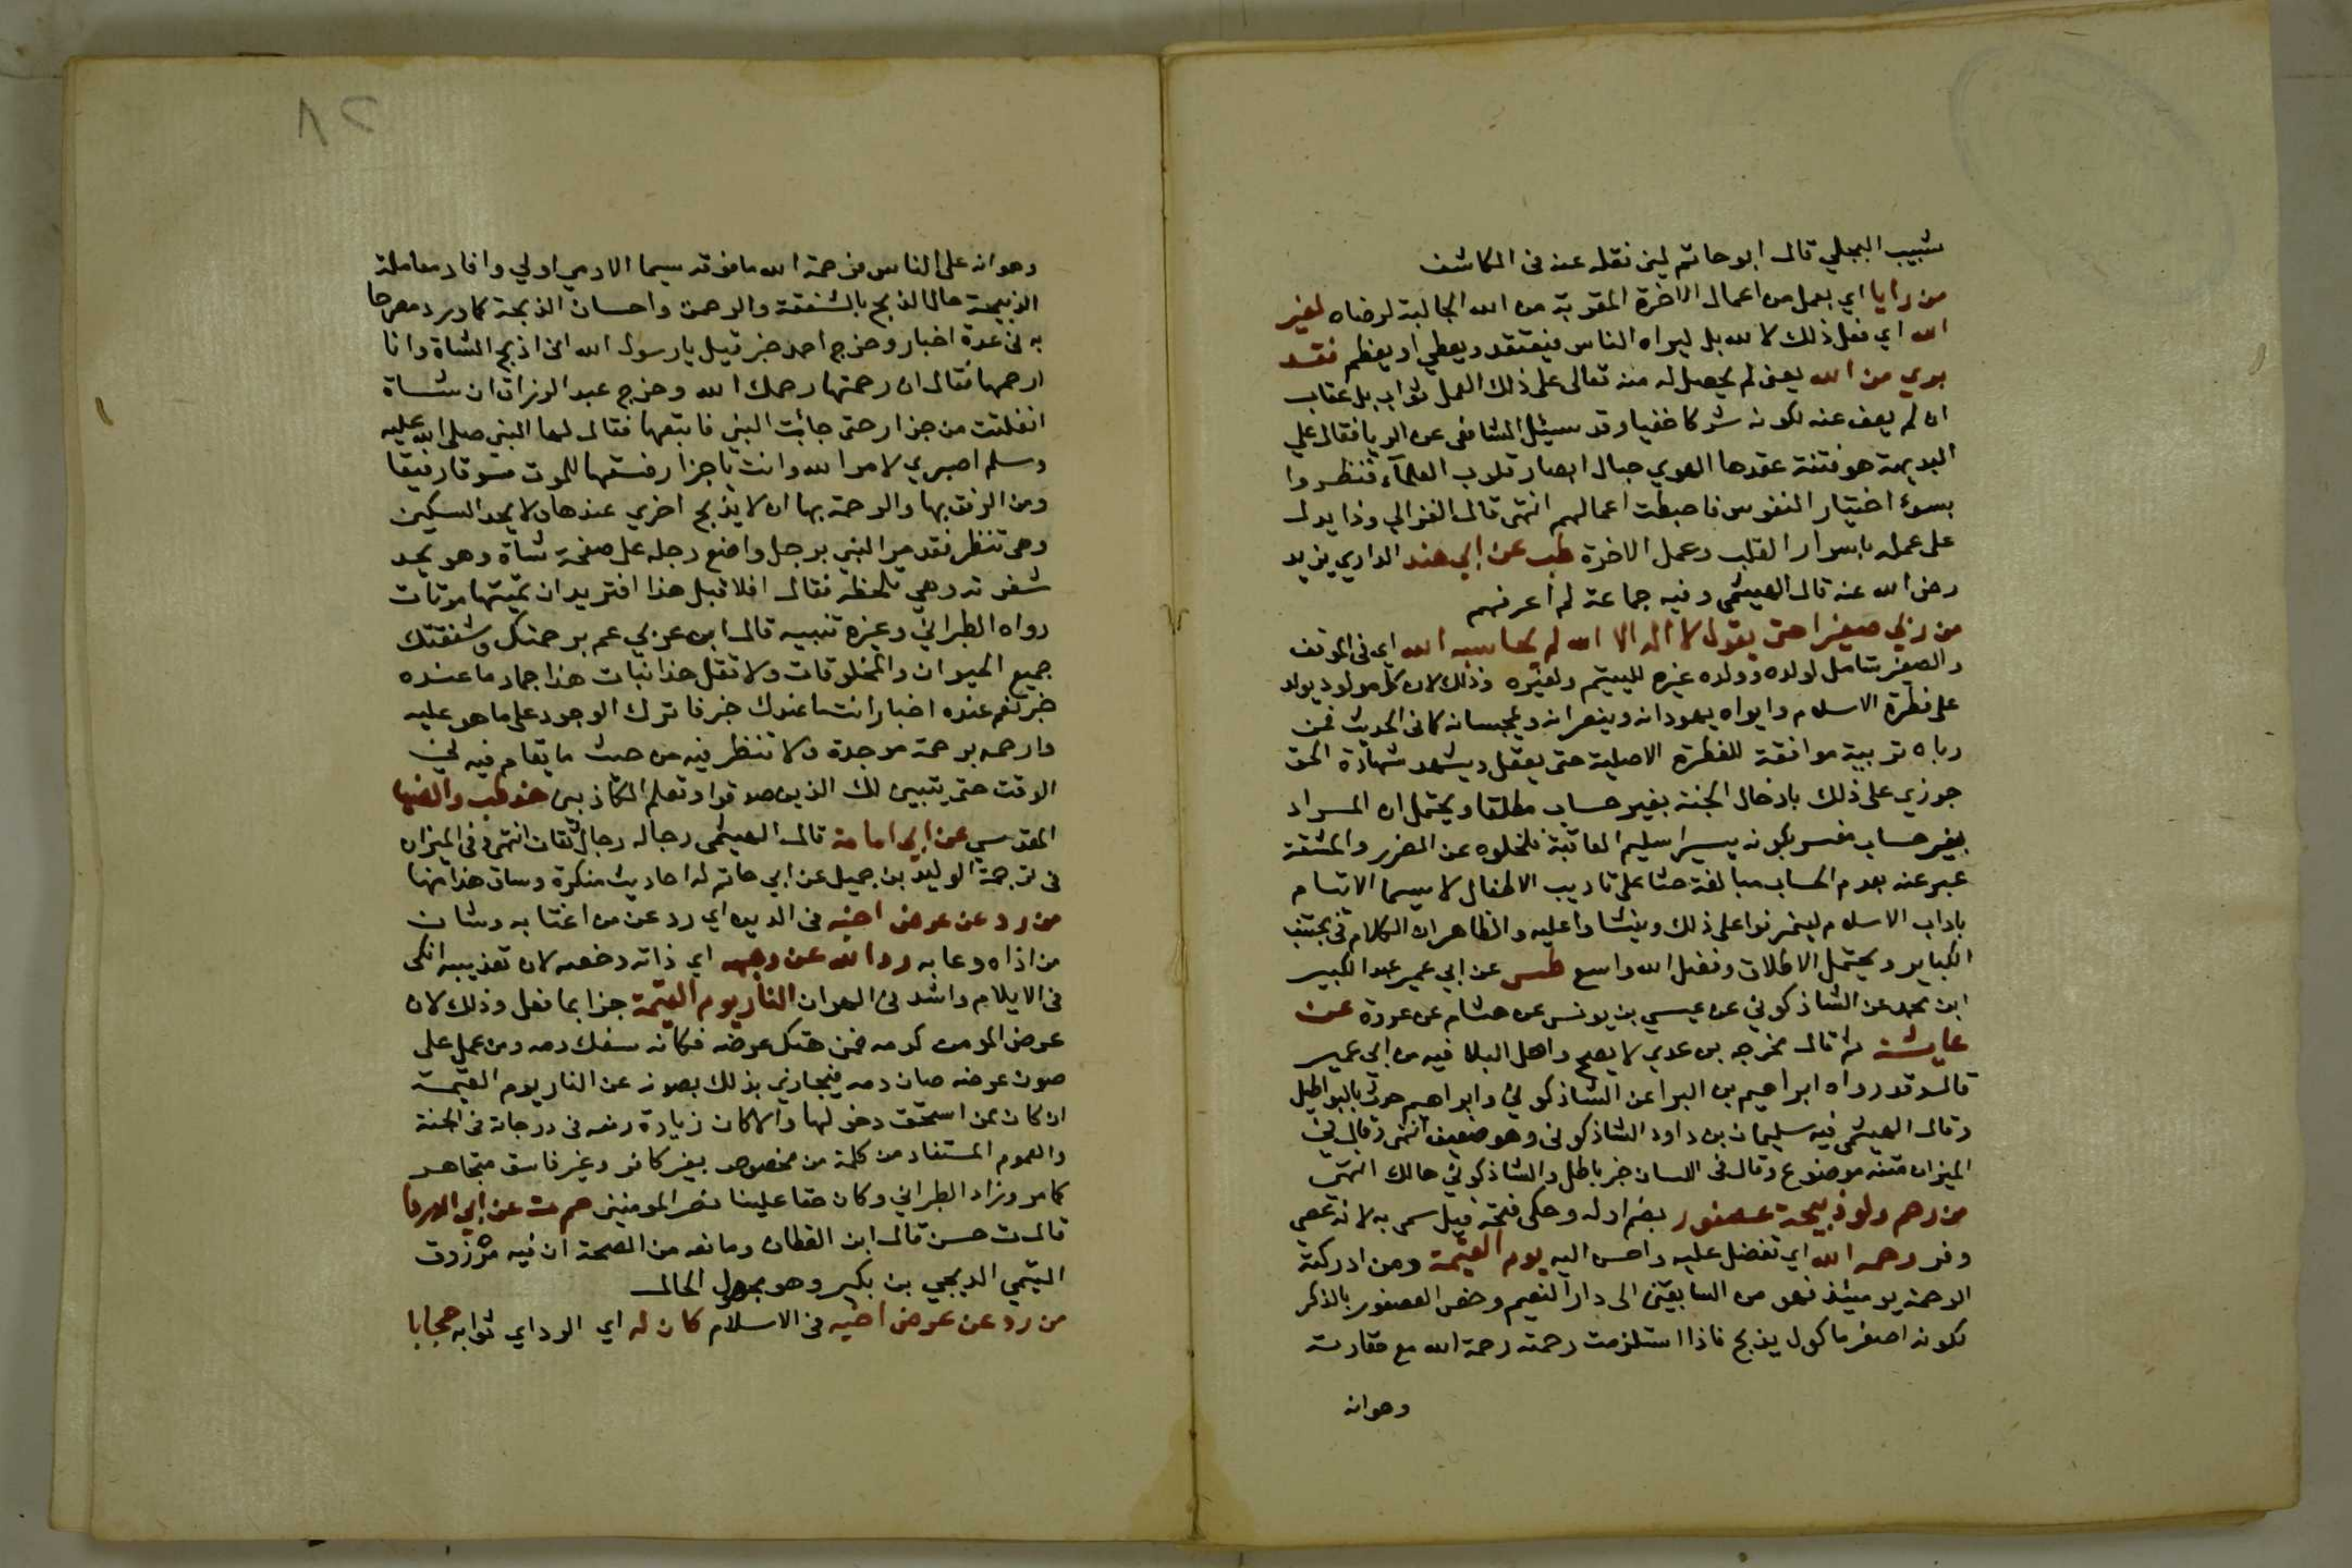 شبيب البجلي قال ابو حاتم لين نقله عنه في الكاشف
من رايا اي بعمل من اعمال الاخرة المقربة من الله الجالبة لرضاه لغير
الله اي فعل ذلك لا لله بل ليراه الناس فيعتقد ويعطي او يعظم فقد
بري من الله يعني لم يحصل له منه تعالى على ذلك العمل ثواب بل عقاب
ان لم يعف عنه لكونه شركا خفيا وقد سيئل الشافعي عن الريا فقال على
البديهة هو فتنة عقدها الهوي حبال ابصار قلوب العلمآء فنظروا
بسوء اختيار النفوس فاحبطت اعمالهم انتهى قال الغزالي وذا يدل
على علمه باسرار القلب وعمل الاخرة طب عن ابي هند الداري يزيد
رضي الله عنه قال الهيثمي وفيه جماعة لم اعرفهم
من ربي صغيرا حتى يقول لا اله الا الله لم يحاسبه الله اي في الموقف
والصغير شامل لولده وولد غيره لليتيم ولغيره وذلك لان كل مولود يولد
على فطرة الاسلام وابواه يهودانه وينصرانه ويمجسانه كما في الحديث فمن
رباه تربية موافقة للفطرة الاصلية حتى يعقل ويشهد شهادة الحق
جوزي على ذلك بادخال الجنة بغير حساب مطلقا ويحتمل ان المراد
بغير حساب عسر بكونه يسيرا سليم العاقبة فلخلوه عن الضرر والمشقة
عبر عنه بعدم الحساب مبالغة حثا على تاديب الاطفال لا سيما الايتام
باداب الاسلام ليتمرنوا على ذلك وينشاوا عليه والظاهر ان الكلام في مجتنب
الكباير ويحتمل الاطلاق وفضل الله واسع طس عن ابي عمير عبد الكبير
ابن محمد عن الشاذكوني عن عيسى بن يونس عن هشام عن عروة عن
عايشة ثم قال مخرجه بن عدي لا يصح واهل البلا فيه من ابي عمير
قال وقد رواه ابراهيم بن البرا عن الشاذكوني وابراهيم حدث بالبواطيل
وقال الهيثمي فيه سليمان بن داود الشاذكوني وهو ضعيف انتهى وقال في
الميزان متنه موضوع وقال في اللسان خبر باطل والشاذكوني هالك انتهى
من رحم ولو ذبيحة عصفور بضم اوله وحكى فتحه قيل سمي به لانه عصى
وفر رحمه الله اي تفضل عليه واحسن اليه يوم القيمة ومن ادركته
الرحمة يوميئذ فهو من السابقين الى دار النعيم وخص العصفور بالذكر
لكونه اصغر ماكول يذبح فاذا استلزمت رحمته رحمة الله مع حقارته
وهوانه
٨٢
وهوانه على الناس فرحمة الله ما فوقه سيما الادمي اولي وافاد معاملة
الذبيحة حال الذبح بالشفقة والرحمة واحسان الذبحة كما ورد مصرحا
به في عدة اخبار وخرج احمد خبر قيل يا رسول الله اني اذبح الشاة وانا
ارحمها فقال ان رحمتها رحمك الله وخرج عبد الرزاق ان شاة
انفلتت من جزار حتى جائت النبي فاتبعها فقال لها النبي صلى الله عليه
وسلم اصبري لامر الله وانت يا جزار فسقها للموت سوقا رفيقا
ومن الرفق بها والرحمة بها ان لا يذبح اخري عندها ولا يحد السكين
وهي تنظر فقد مر النبي برجل واضع رجله على صفحة شاة وهو يحد
شفرته وهي تلحظه فقال افلا قبل هذا اتريد ان تميتها موتات
رواه الطبراني وغيره تنبيه قال ابن عربي عم برحمتك وشفقتك
جميع الحيوان والمخلوقات ولا تقل هذا نبات هذا جماد ما عنده
خبر نعم عنده اخبار انت ما عندك خبر فاترك الوجود على ما هو عليه
وارحمه برحمة موجده ولا تنظر فيه من حيث ما يقام فيه في
الوقت حتى يتبين لك الذين صدقوا وتعلم الكاذبين خد طب والضيا
المقدسي عن ابي امامة قال الهيثمي رجاله رجال ثقات انتهى وفي الميزان
في ترجمة الوليد بن جميل عن ابي حاتم له احاديث منكرة وساق هذا منها
من رد عن عرض اخيه في الدين اي رد عن من اغتابه وشان
من اذاه وعابه رد الله عن وجهه اي ذاته وخصه لان تعذيبه انكى
في الايلام واشد في الهوان النار يوم القيمة جزا بما فعل وذلك لان
عرض المومن كدمه فمن هتك عرضه فكانه سفك دمه ومن عمل على
صون عرضه صان دمه فيجازي بذلك بصونه عن النار يوم القيمة
ان كان ممن استحق دخولها والا كان زيادة رفعه في درجاته في الجنة
والعموم المستفاد من كلمة من مخصوص بغير كافر وغير فاسق متجاهر
كما مر وزاد الطبراني وكان حقا علينا نصر المومنين حم ت عن ابي الدرداء
قال ت حسن قال ابن القطان ومانعه من الصحة ان فيه مرزوق
التيمي الد يحيى بن بكير وهو مجهول الحال
من رد عن عرض اخيه في الاسلام كان له اي الرد اي ثوابه حجابا